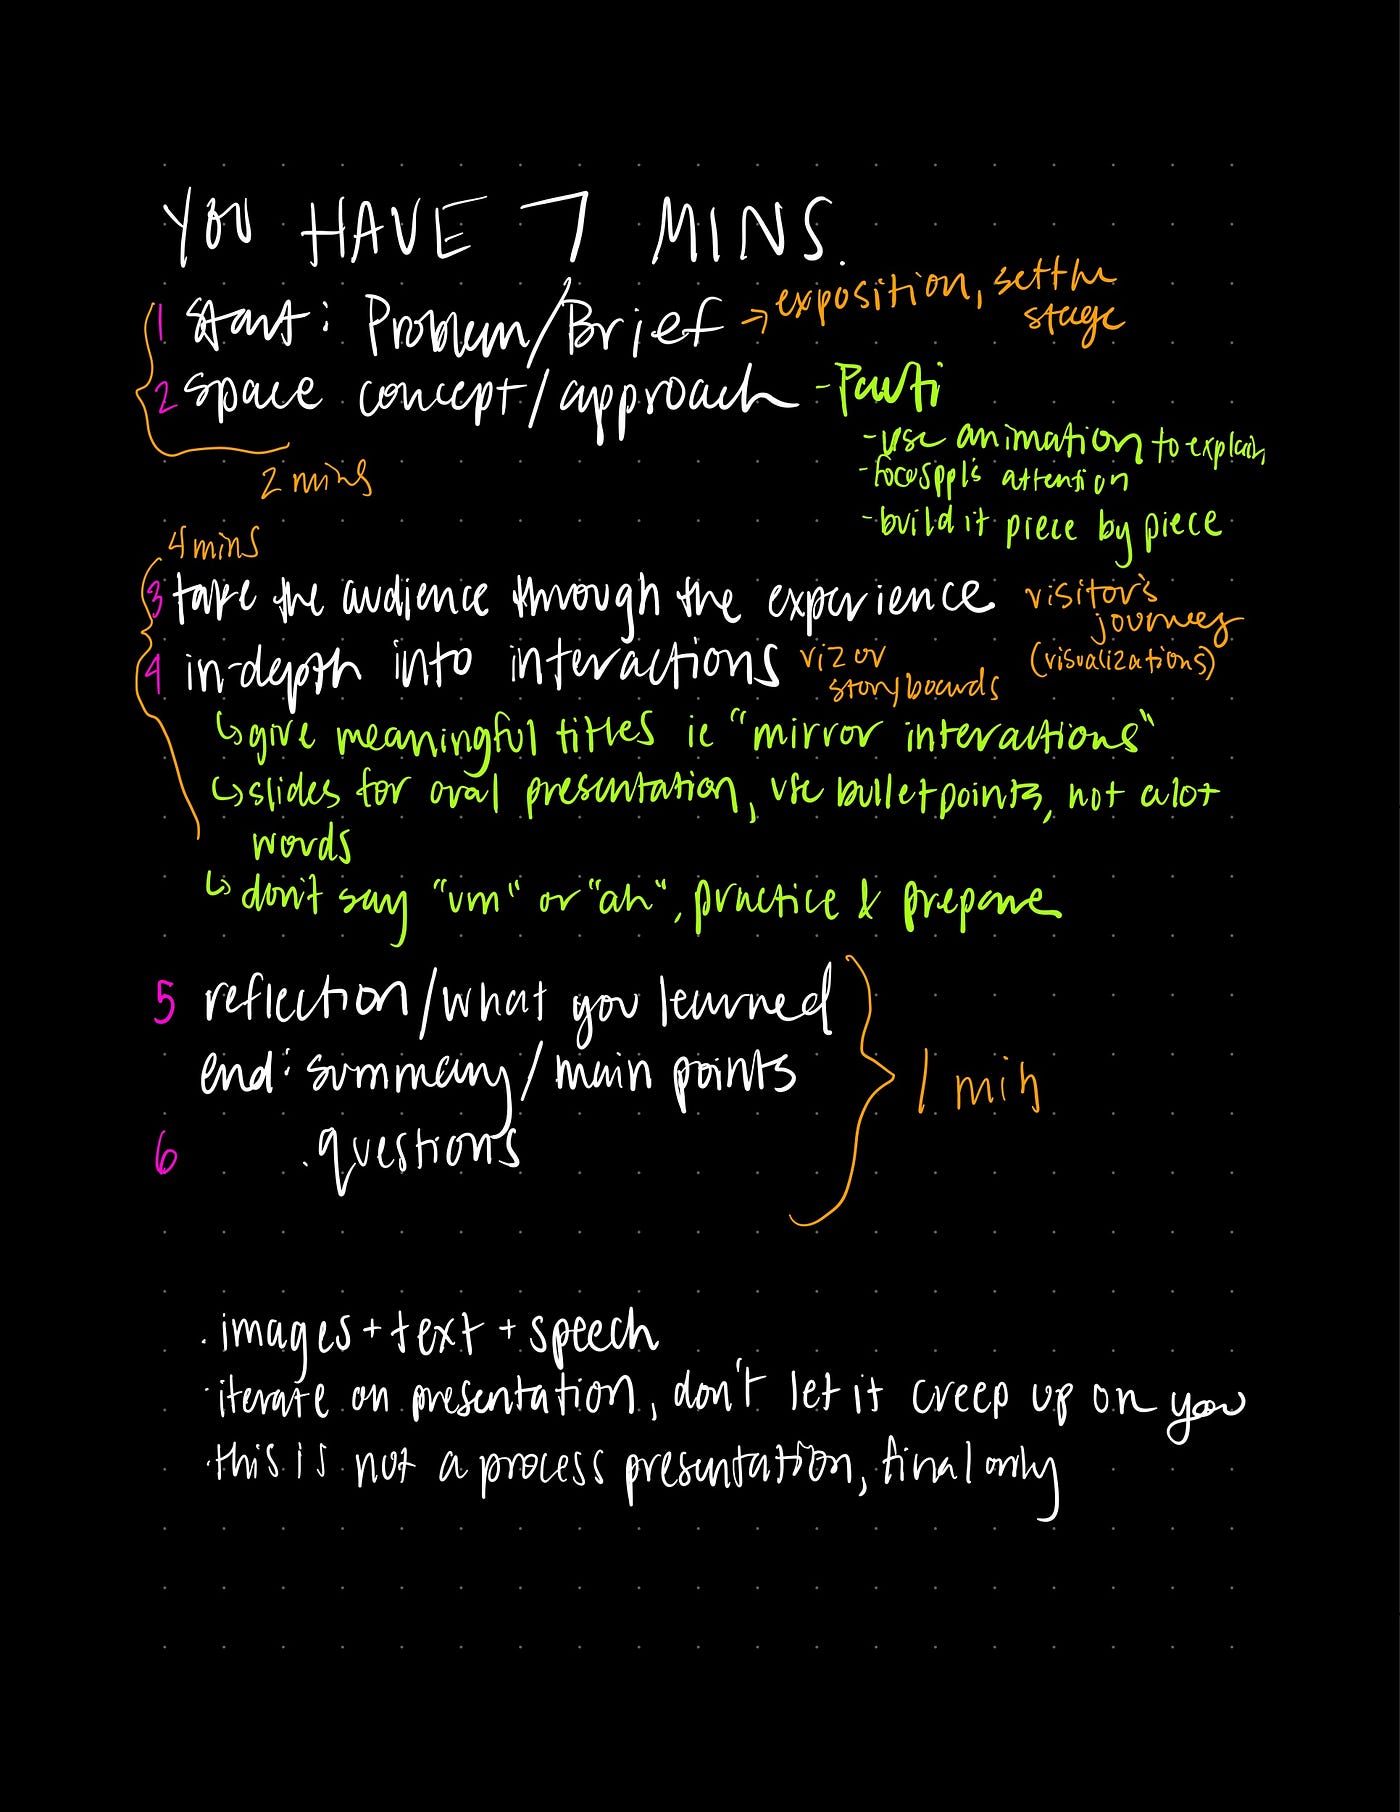 YOU HAVE 7 MINS.
1 start: Problem/Brief → exposition, set the
stage
2 space concept/approach - Parti
- use animation to explain
- focus ppl's attention
- build it piece by piece
2 mins
4 mins
3 take the audience through the experience visitor's
journey
(visualizations)
4 in-depth into interactions viz or
storyboards
↳ give meaningful titles ie "mirror interactions"
↳ slides for oral presentation, use bulletpoints, not alot
words
↳ don't say "um" or "ah", practice & prepare
5 reflection/what you learned
end: summary/main points
1 min
6 . questions
. images + text + speech
. iterate on presentation, don't let it creep up on you
. this is not a process presentation, final only